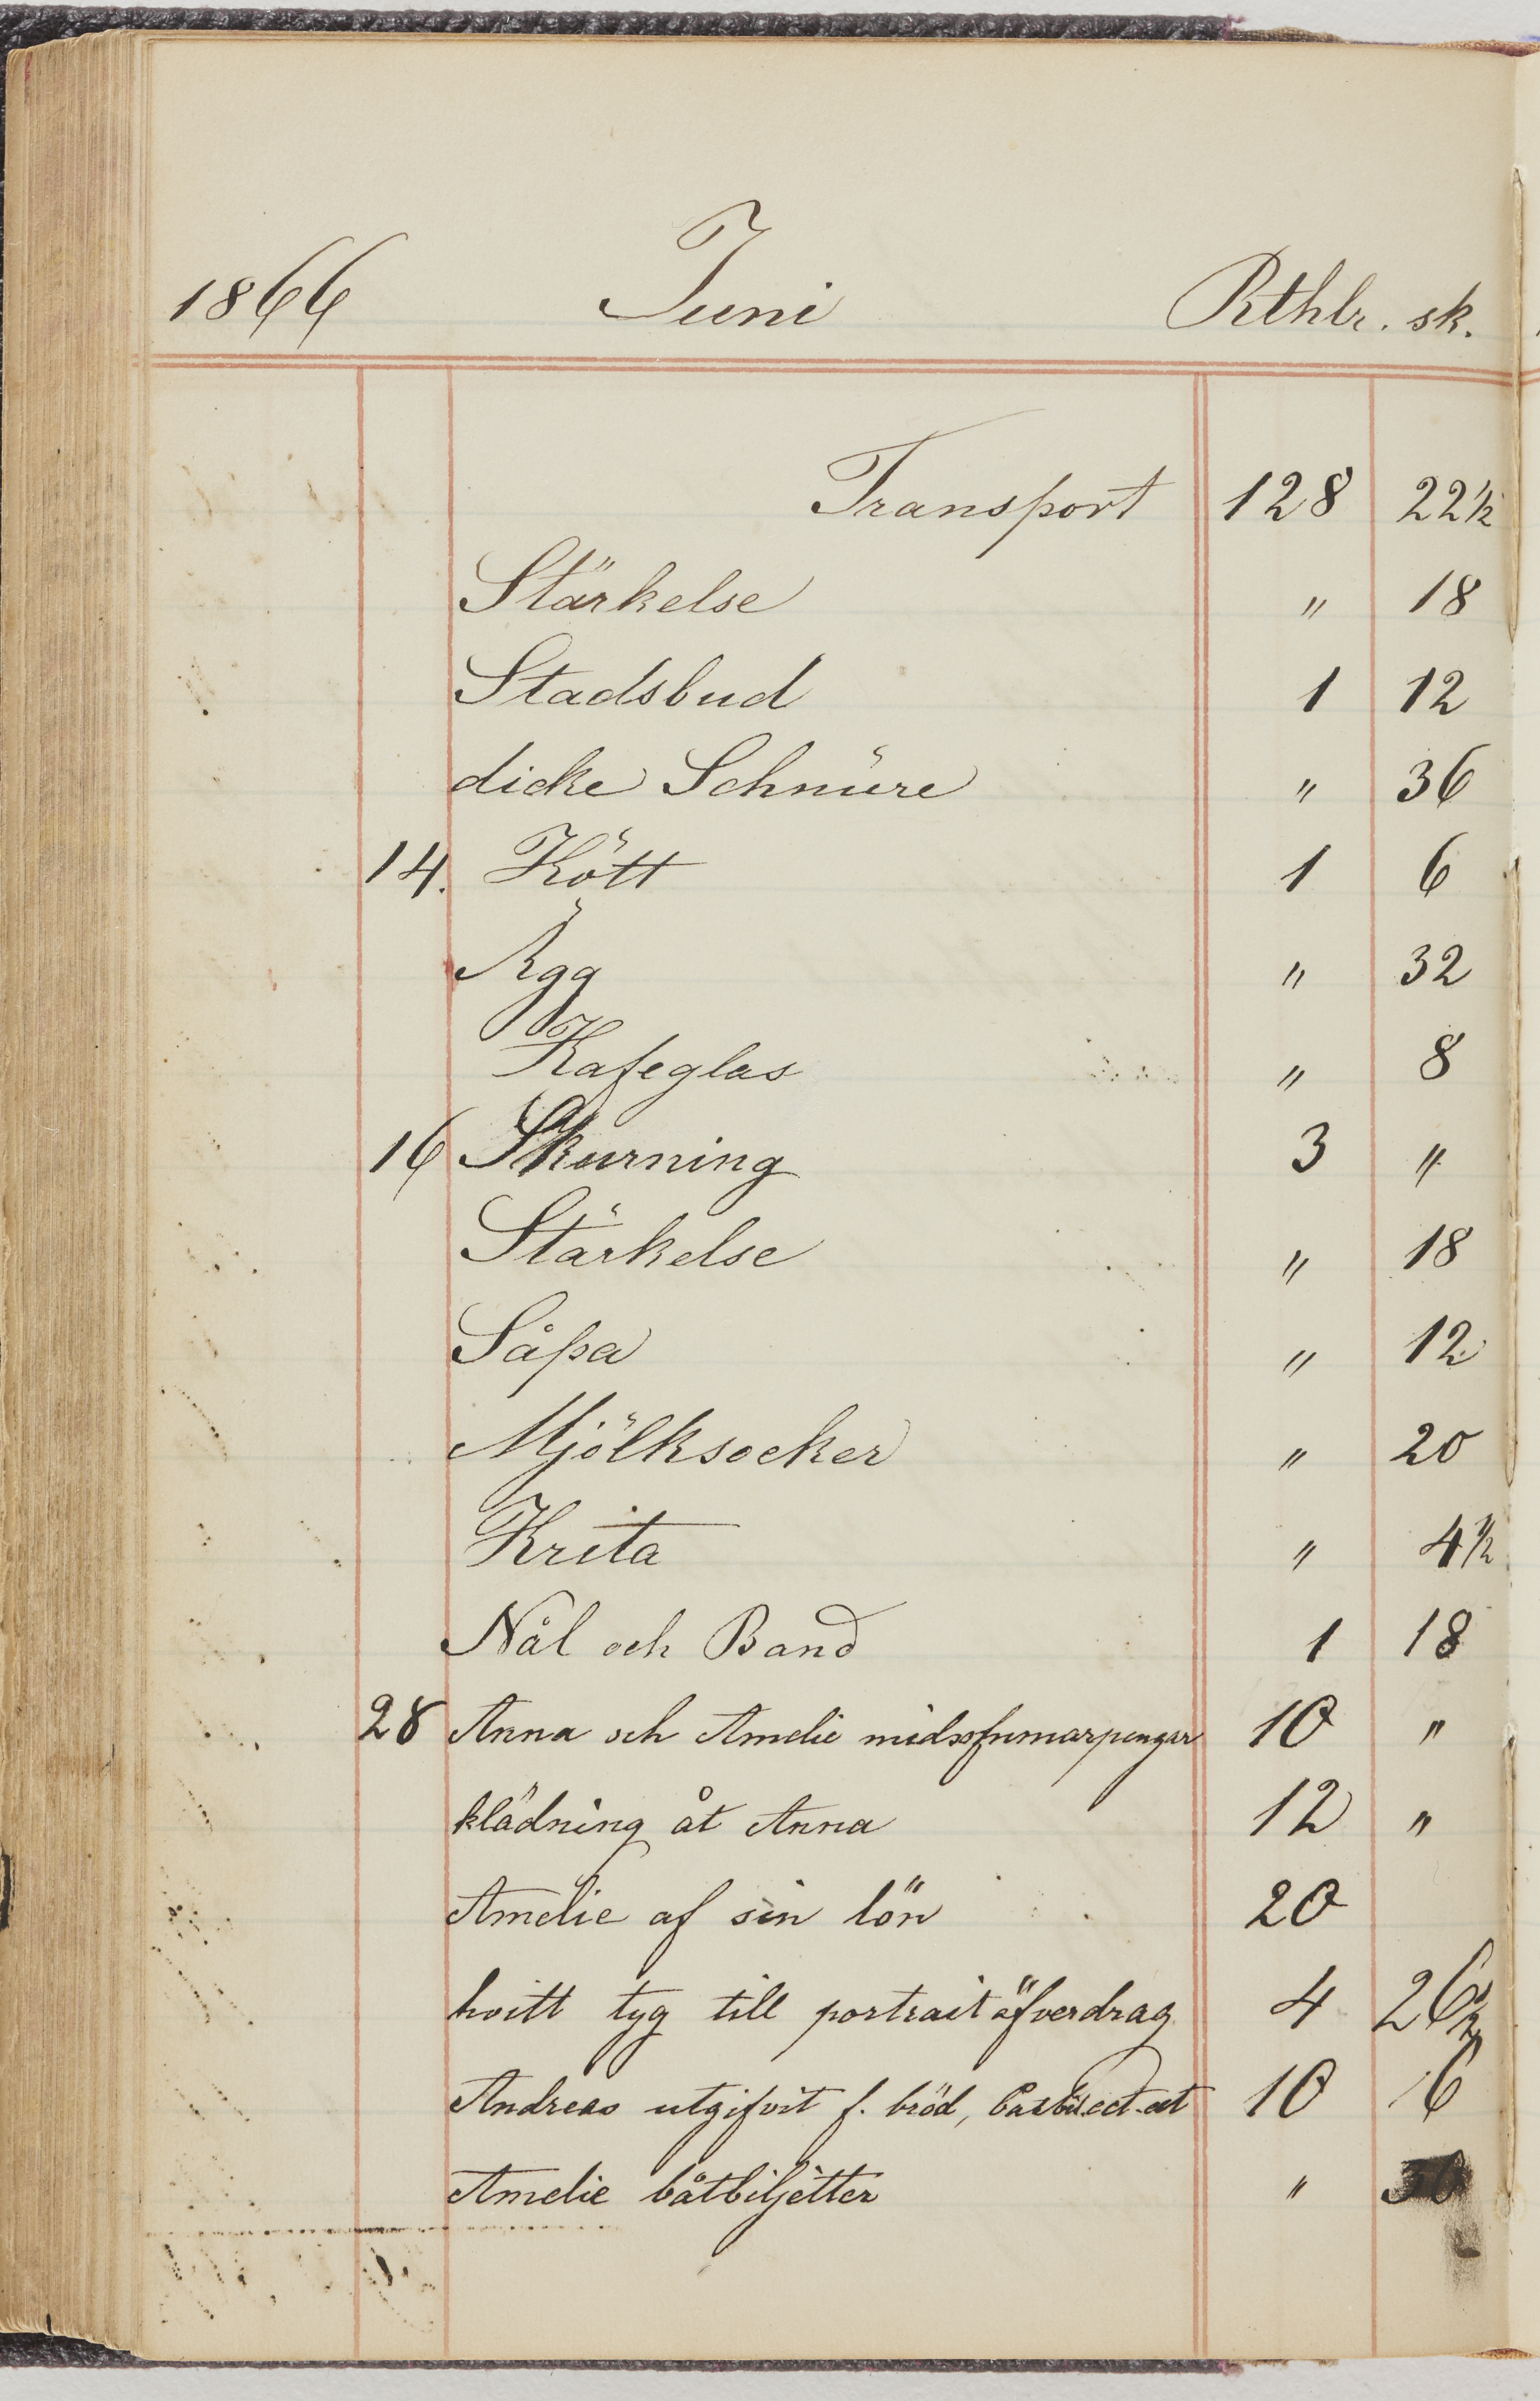 1866 Juni Rthlr. sk.
Transport 128 22 1/2
Stärkelse " 18
Stadsbud 1 12
dicke Schnüre " 36
14. Kött 1 6
Ägg " 32
Kafeglas " 8
16 Skurning 3 "
Stärkelse " 18
Såpa " 12
Mjölksocker " 20
Krita " 4 1/2
Nål och Band 1 18
28 Anna och Amelie midsommarpengar 10 "
klädning åt Anna 12 "
Amelie af sin lön 20
hvitt tyg till portrait öfverdrag 4 26 1/2
Andreas utgifvit f. bröd, 10 6
Amelie båtbiljetter " 36